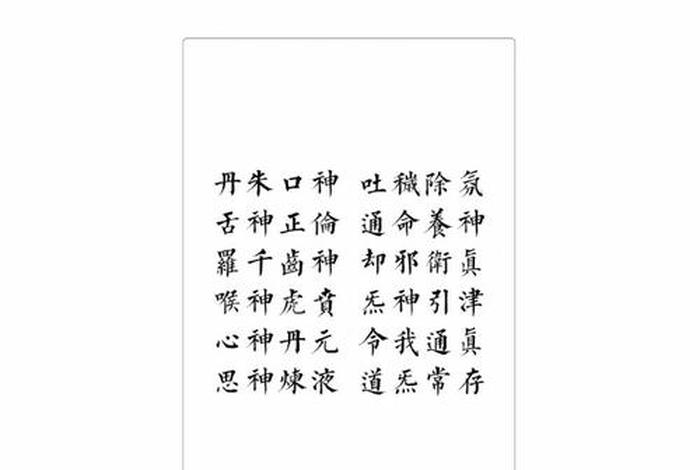 丹朱口神 吐穢除氛
舌神正倫 通命養神
羅千齒神 却邪衛眞
喉神虎賁 炁神引津
心神丹元 令我通眞
思神煉液 道炁常存